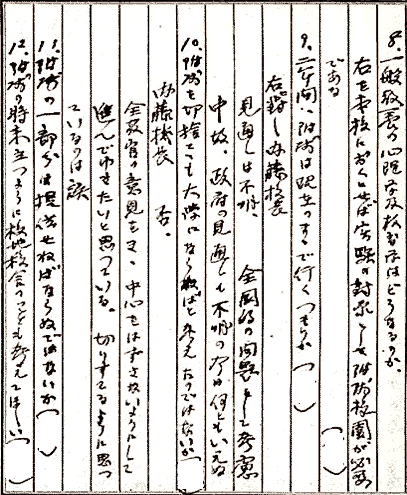 8. 一般教養の心理学及教育法はどうなるのか。
右を本校におくとせば実験の対象として附属校園が必要
である （ ）
9. 二年間、附属は現在のまゝで行くつもりか（ ）
右に対し内藤校長
見通しは不明。 全国的の問題として考慮
中故、政府の見通しも不明の今は何ともいえぬ
10. 附属を切捨てゝも大学にならねばと考えたのではないか（ ）
内藤校長 否。
全教官の意見をきゝ中心をはずさないようにして
進んでゆきたいと思っている。 切りすてるように思っ
ているのは誤
11. 附属の一部分は提供せねばならぬではないか（ ）
12. 附属の将来立つように校地校舎のことも考えてほしい（ ）